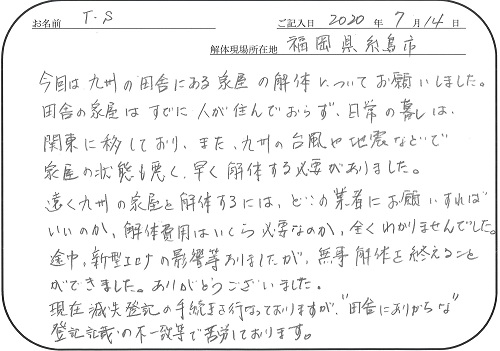 お名前 T.S ご記入日 2020 年 7 月 14 日
解体現場所在地 福岡県糸島市
今回は九州の田舎にある家屋の解体についてお願いしました。
田舎の家屋はすでに人が住んでおらず、日常の暮しは、
関東に移しており、また、九州の台風や地震などで
家屋の状態も悪く、早く解体する必要がありました。
遠く九州の家屋を解体するには、どこの業者にお願いすれば
いいのか、解体費用はいくら必要なのか、全くわかりませんでした。
途中、新型コロナの影響等ありましたが、無事解体を終えること
ができました。ありがとうございました。
現在滅失登記の手続きを行なっておりますが、"田舎にありがちな"
登記記載の不一致等で苦労しております。